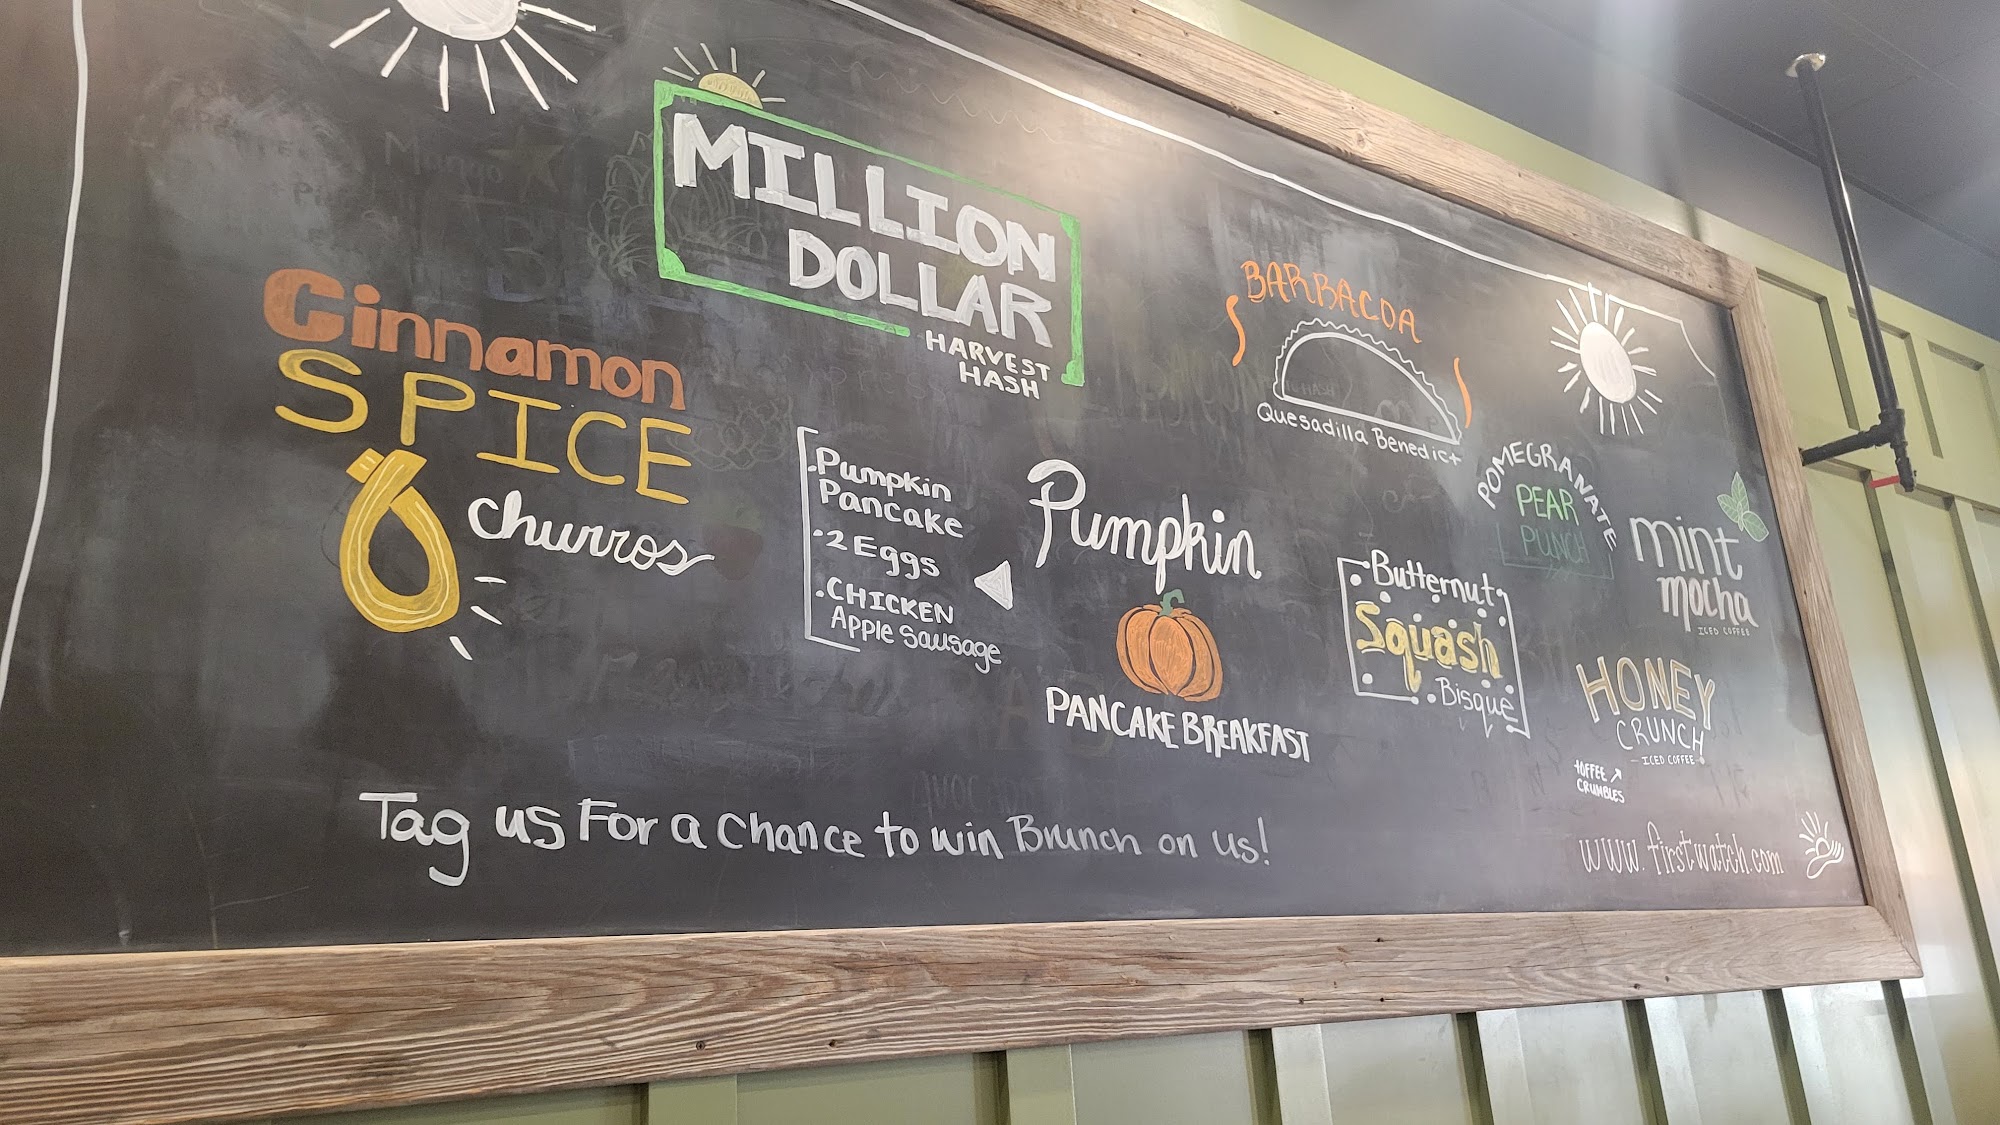 MILLION
DOLLAR
HARVEST
HASH
Cinnamon
SPICE
churros
.Pumpkin
Pancake
.2 Eggs
.CHICKEN
Apple Sausage
Pumpkin
PANCAKE BREAKFAST
BARBACOA
Quesadilla Benedict
Butternut
Squash
Bisque
POMEGRANATE
PEAR
PUNCH
mint
mocha
ICED COFFEE
HONEY
CRUNCH
- ICED COFFEE -
tOFFEE
CRUMBLES
Tag us For a Chance to win Brunch on us!
www.firstwatch.com